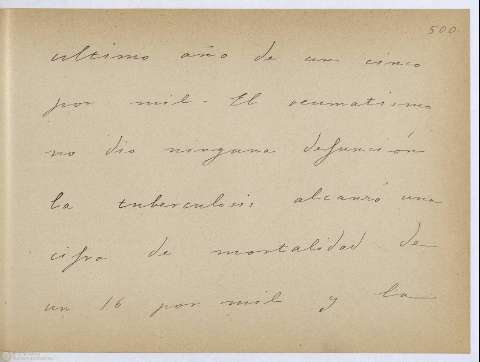 500
ultimo año de un cinco
por mil. El reumatismo
no dio ninguna defunción
la tuberculosis alcanzó una
cifra de mortalidad de
un 16 por mil y la